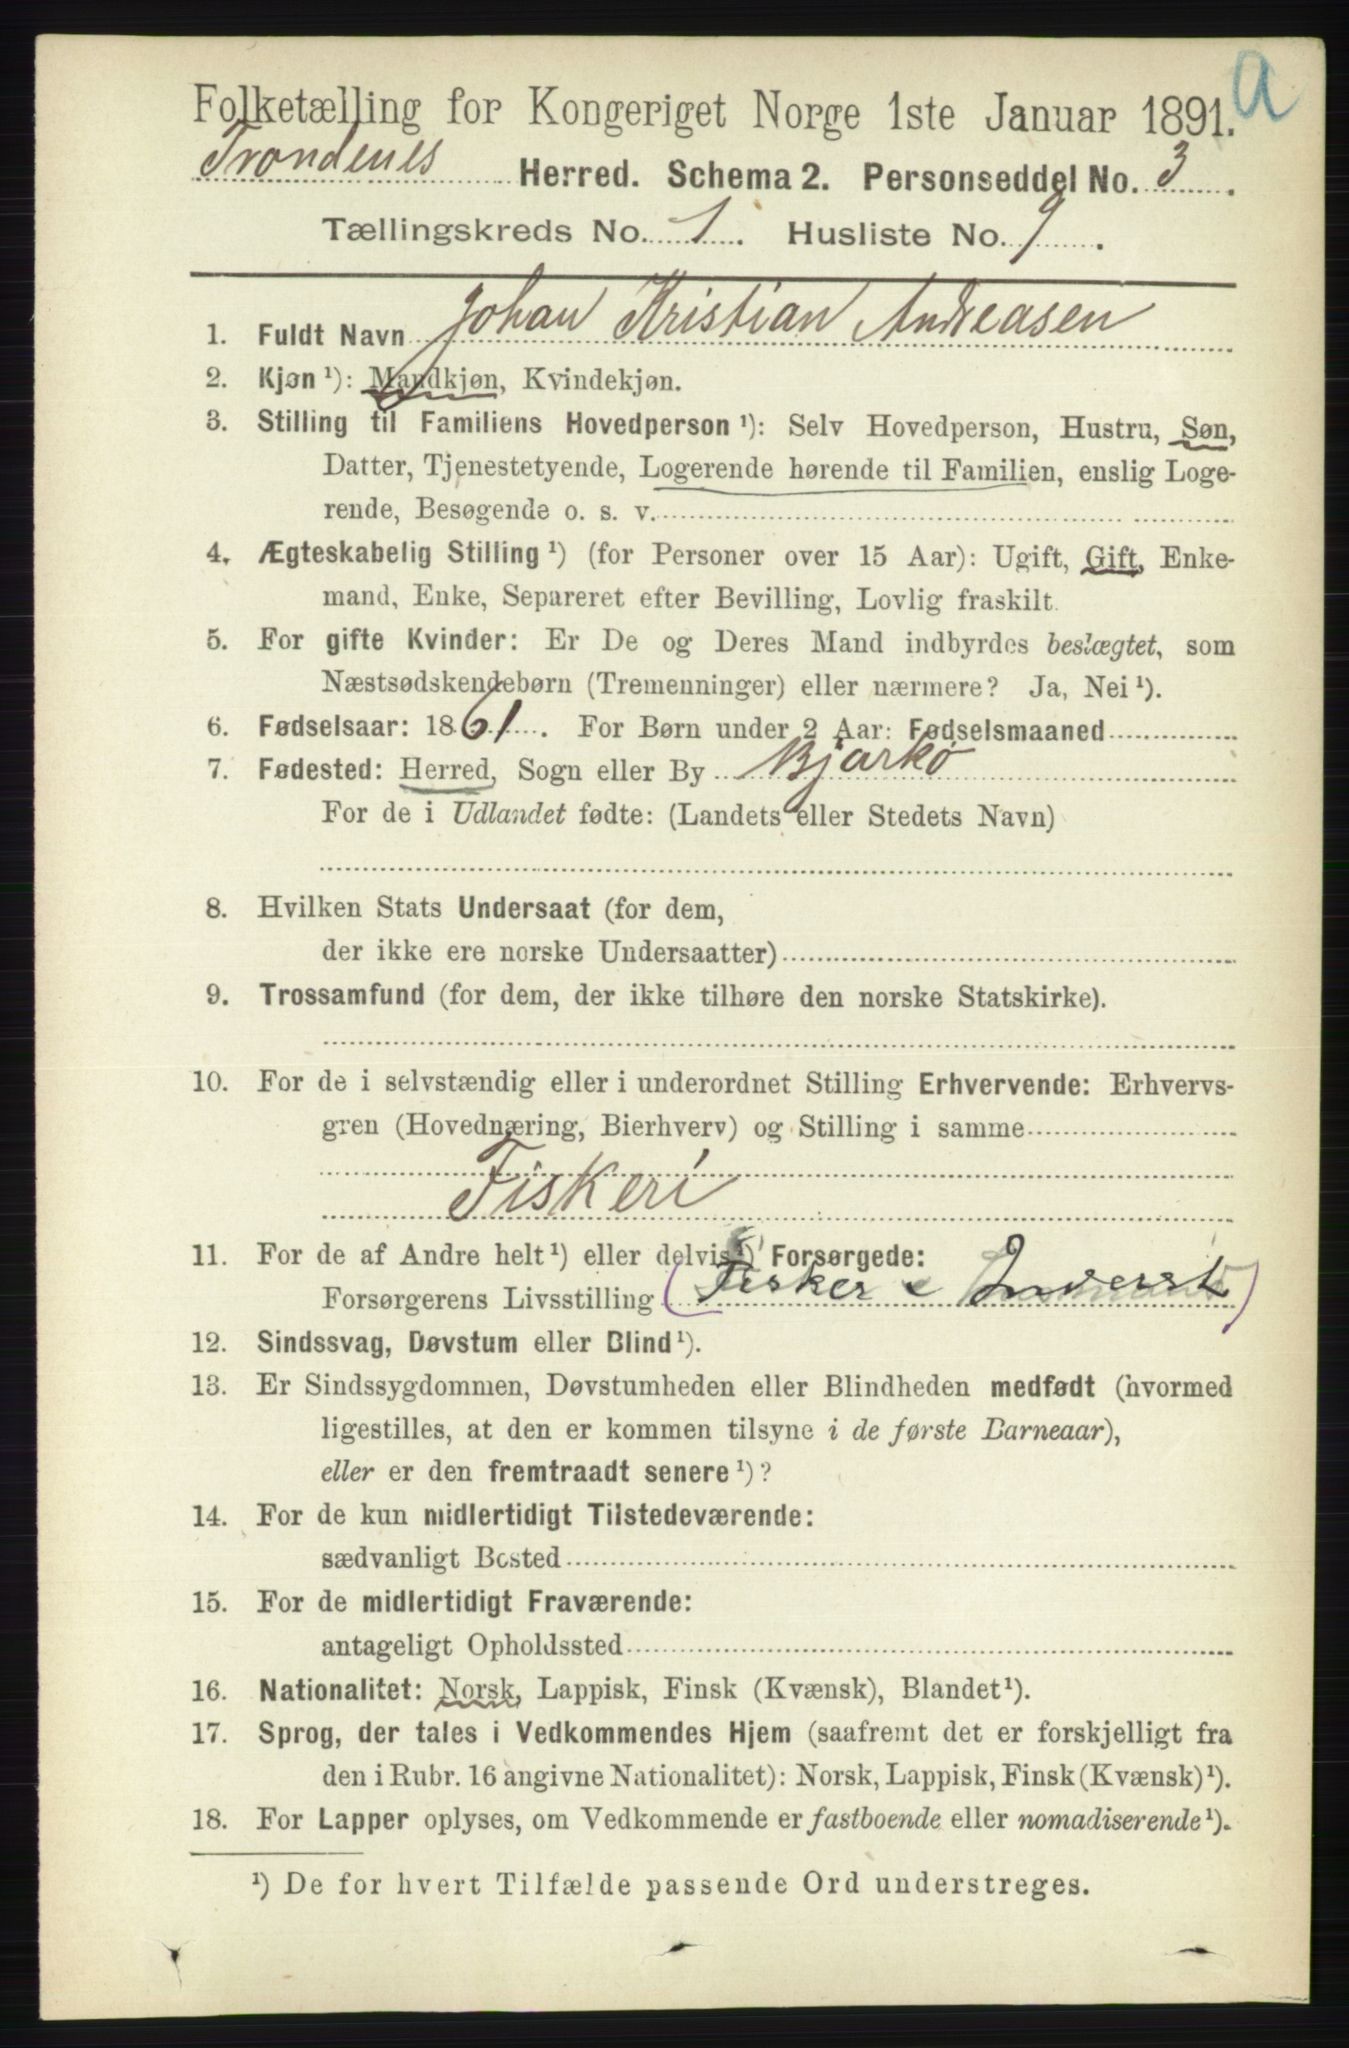 a
Folketælling for Kongeriget Norge 1ste Januar 1891.
Trondenes Herred. Schema 2. Personseddel No. 3.
Tællingskreds No. 1. Husliste No. 9.
1. Fuldt Navn Johan Kristian Andreasen
2. Kjøn ¹): Mandkjøn, Kvindekjøn.
3. Stilling til Familiens Hovedperson ¹): Selv Hovedperson, Hustru, Søn,
Datter, Tjenestetyende, Logerende hørende til Familien, enslig Loge-
rende, Besøgende o. s. v.
4. Ægteskabelig Stilling ¹) (for Personer over 15 Aar): Ugift, Gift, Enke-
mand, Enke, Separeret efter Bevilling, Lovlig fraskilt.
5. For gifte Kvinder: Er De og Deres Mand indbyrdes beslægtet, som
Næstsødskendebørn (Tremenninger) eller nærmere? Ja, Nei ¹).
6. Fødselsaar: 1861. For Børn under 2 Aar: Fødselsmaaned
7. Fødested: Herred, Sogn eller By Bjarkø
For de i Udlandet fødte: (Landets eller Stedets Navn)
8. Hvilken Stats Undersaat (for dem,
der ikke ere norske Undersaatter)
9. Trossamfund (for dem, der ikke tilhøre den norske Statskirke).
10. For de i selvstændig eller i underordnet Stilling Erhvervende: Erhvervs-
gren (Hovednæring, Bierhverv) og Stilling i samme
Fiskeri
11. For de af Andre helt ¹) eller delvis ¹) Forsørgede:
Forsørgerens Livsstilling (Fisker e Inderst)
12. Sindssvag, Døvstum eller Blind ¹).
13. Er Sindssygdommen, Døvstumheden eller Blindheden medfødt (hvormed
ligestilles, at den er kommen tilsyne i de første Barneaar),
eller er den fremtraadt senere ¹)?
14. For de kun midlertidigt Tilstedeværende:
sædvanligt Bosted
15. For de midlertidigt Fraværende:
antageligt Opholdssted
16. Nationalitet: Norsk, Lappisk, Finsk (Kvænsk), Blandet ¹).
17. Sprog, der tales i Vedkommendes Hjem (saafremt det er forskjelligt fra
den i Rubr. 16 angivne Nationalitet): Norsk, Lappisk, Finsk (Kvænsk) ¹).
18. For Lapper oplyses, om Vedkommende er fastboende eller nomadiserende ¹).
¹) De for hvert Tilfælde passende Ord understreges.